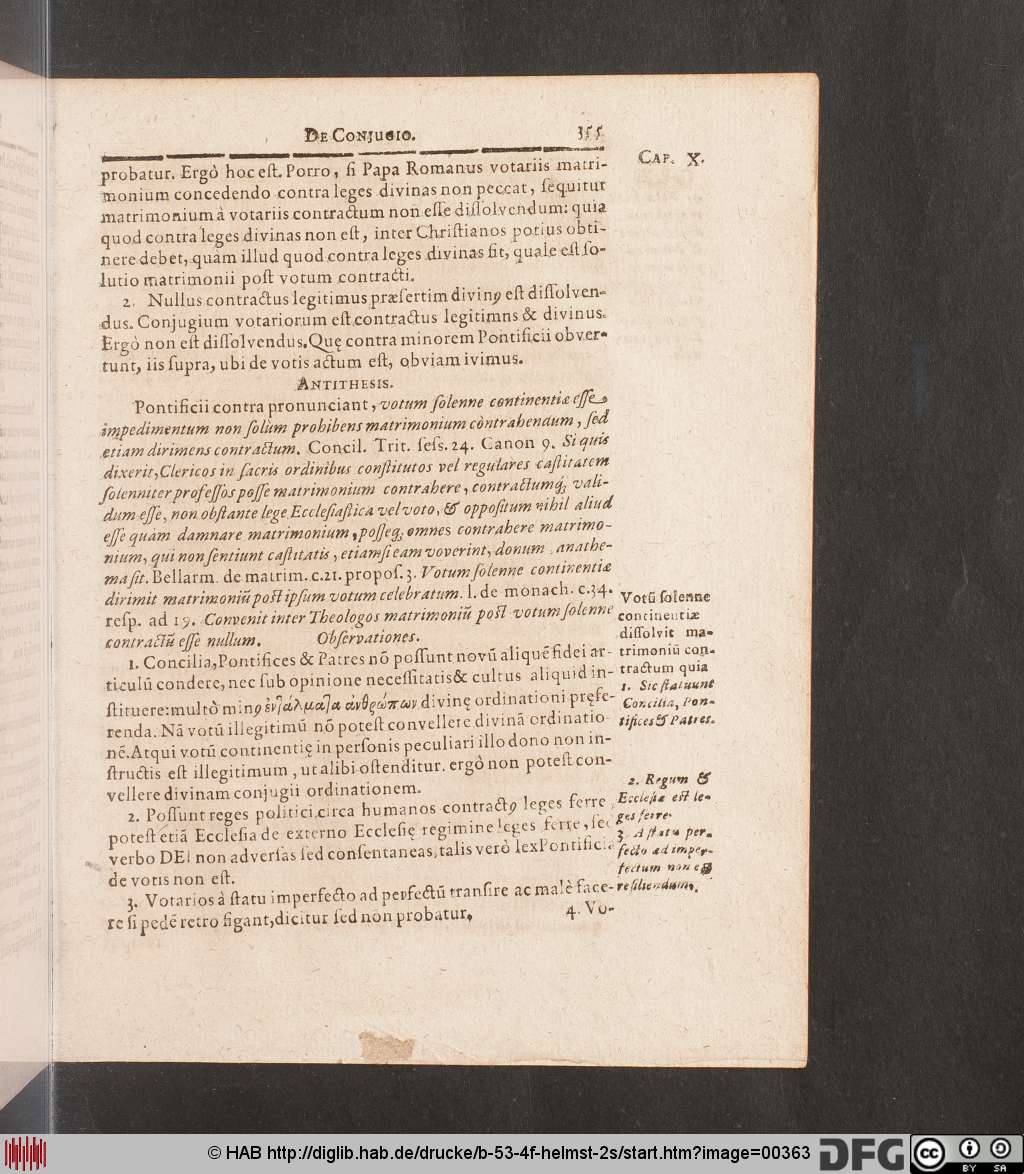 DE CONJUGIO. 355
CAP. X.
probatur. Ergò hoc eſt. Porro, ſi Papa Romanus votariis matri-
monium concedendo contra leges divinas non peccat, ſequitur
matrimonium à votariis contractum non eſſe diſſolvendum: quia
quod contra leges divinas non eſt, inter Chriſtianos potius obti-
nere debet, quàm illud quod contra leges divinas ſit, quale eſt ſo-
lutio matrimonii poſt votum contracti.
2. Nullus contractus legitimus præſertim divinꝰ eſt diſſolven-
dus. Conjugium votariorum eſt contractus legitimns & divinus.
Ergò non eſt diſſolvendus. Quę contra minorem Pontificii obver-
tunt, iis ſupra, ubi de votis actum eſt, obviam ivimus.
ANTITHESIS.
Pontificii contra pronunciant, votum ſolenne continentiæ eſſe
impedimentum non ſolùm prohibens matrimonium còntrahendum, ſed
etiam dirimens contractum. Concil. Trit. ſeſs. 24. Canon 9. Si quis
dixerit, Clericos in ſacris ordinibus conſtitutos vel regulares caſtitatem
ſolenniter profeſſos poſſe matrimonium contrahere, contractumq́; vali-
dum eſſe, non obſtante lege Eccleſiaſtica vel voto, & oppoſitum nihil aliud
eſſe quàm damnare matrimonium, poſſeq́; omnes contrahere matrimo-
nium, qui non ſentiunt caſtitatis, etiamſi eam voverint, donum, anathe-
ma ſit. Bellarm. de matrim. c. 21. propoſ. 3. Votum ſolenne continentiæ
dirimit matrimoniũ poſt ipſum votum celebratum. l. de monach. c. 34.
reſp. ad 19. Convenit inter Theologos matrimoniũ poſt votum ſolenne
contractũ eſſe nullum. Obſervationes.
1. Concilia, Pontifices & Patres nõ poſſunt novũ aliquẽ fidei ar-
ticulũ condere, nec ſub opinione neceſſitatis & cultus aliquid in-
ſtituere: multò minꝰ ἐνϊάλματα ἀνθρώπων divinę ordinationi pręfe-
renda. Nã votũ illegitimũ nõ poteſt convellere divinã ordinatio-
nẽ. Atqui votũ continentię in perſonis peculiari illo dono non in-
ſtructis eſt illegitimum, ut alibi oſtenditur. ergò non poteſt con-
vellere divinam conjugii ordinationem.
2. Poſſunt reges politici circa humanos contractꝰ leges ferre,
poteſt etiã Eccleſia de externo Eccleſię regimine leges ferre, ſed
verbo DEI non adverſas ſed conſentaneas, talis verò lex Pontificia
de votis non eſt.
3. Votarios à ſtatu imperfecto ad perfectũ tranſire ac malè face-
re ſi pedẽ retro figant, dicitur ſed non probatur.
4. Vo-
Votũ ſolenne
continentiæ
diſſolvit ma-
trimoniũ con-
tractum quia
1. Sic ſtatuunt
Concilia, Pon-
tifices & Patres.
2. Regum &
Eccleſiæ eſt le-
ges ferre.
3. A ſtatu per-
fecto ad imper-
fectum non eſt
reſiliendum.
© HAB http://diglib.hab.de/drucke/b-53-4f-helmst-2s/start.htm?image=00363
DFG
cc
BY SA